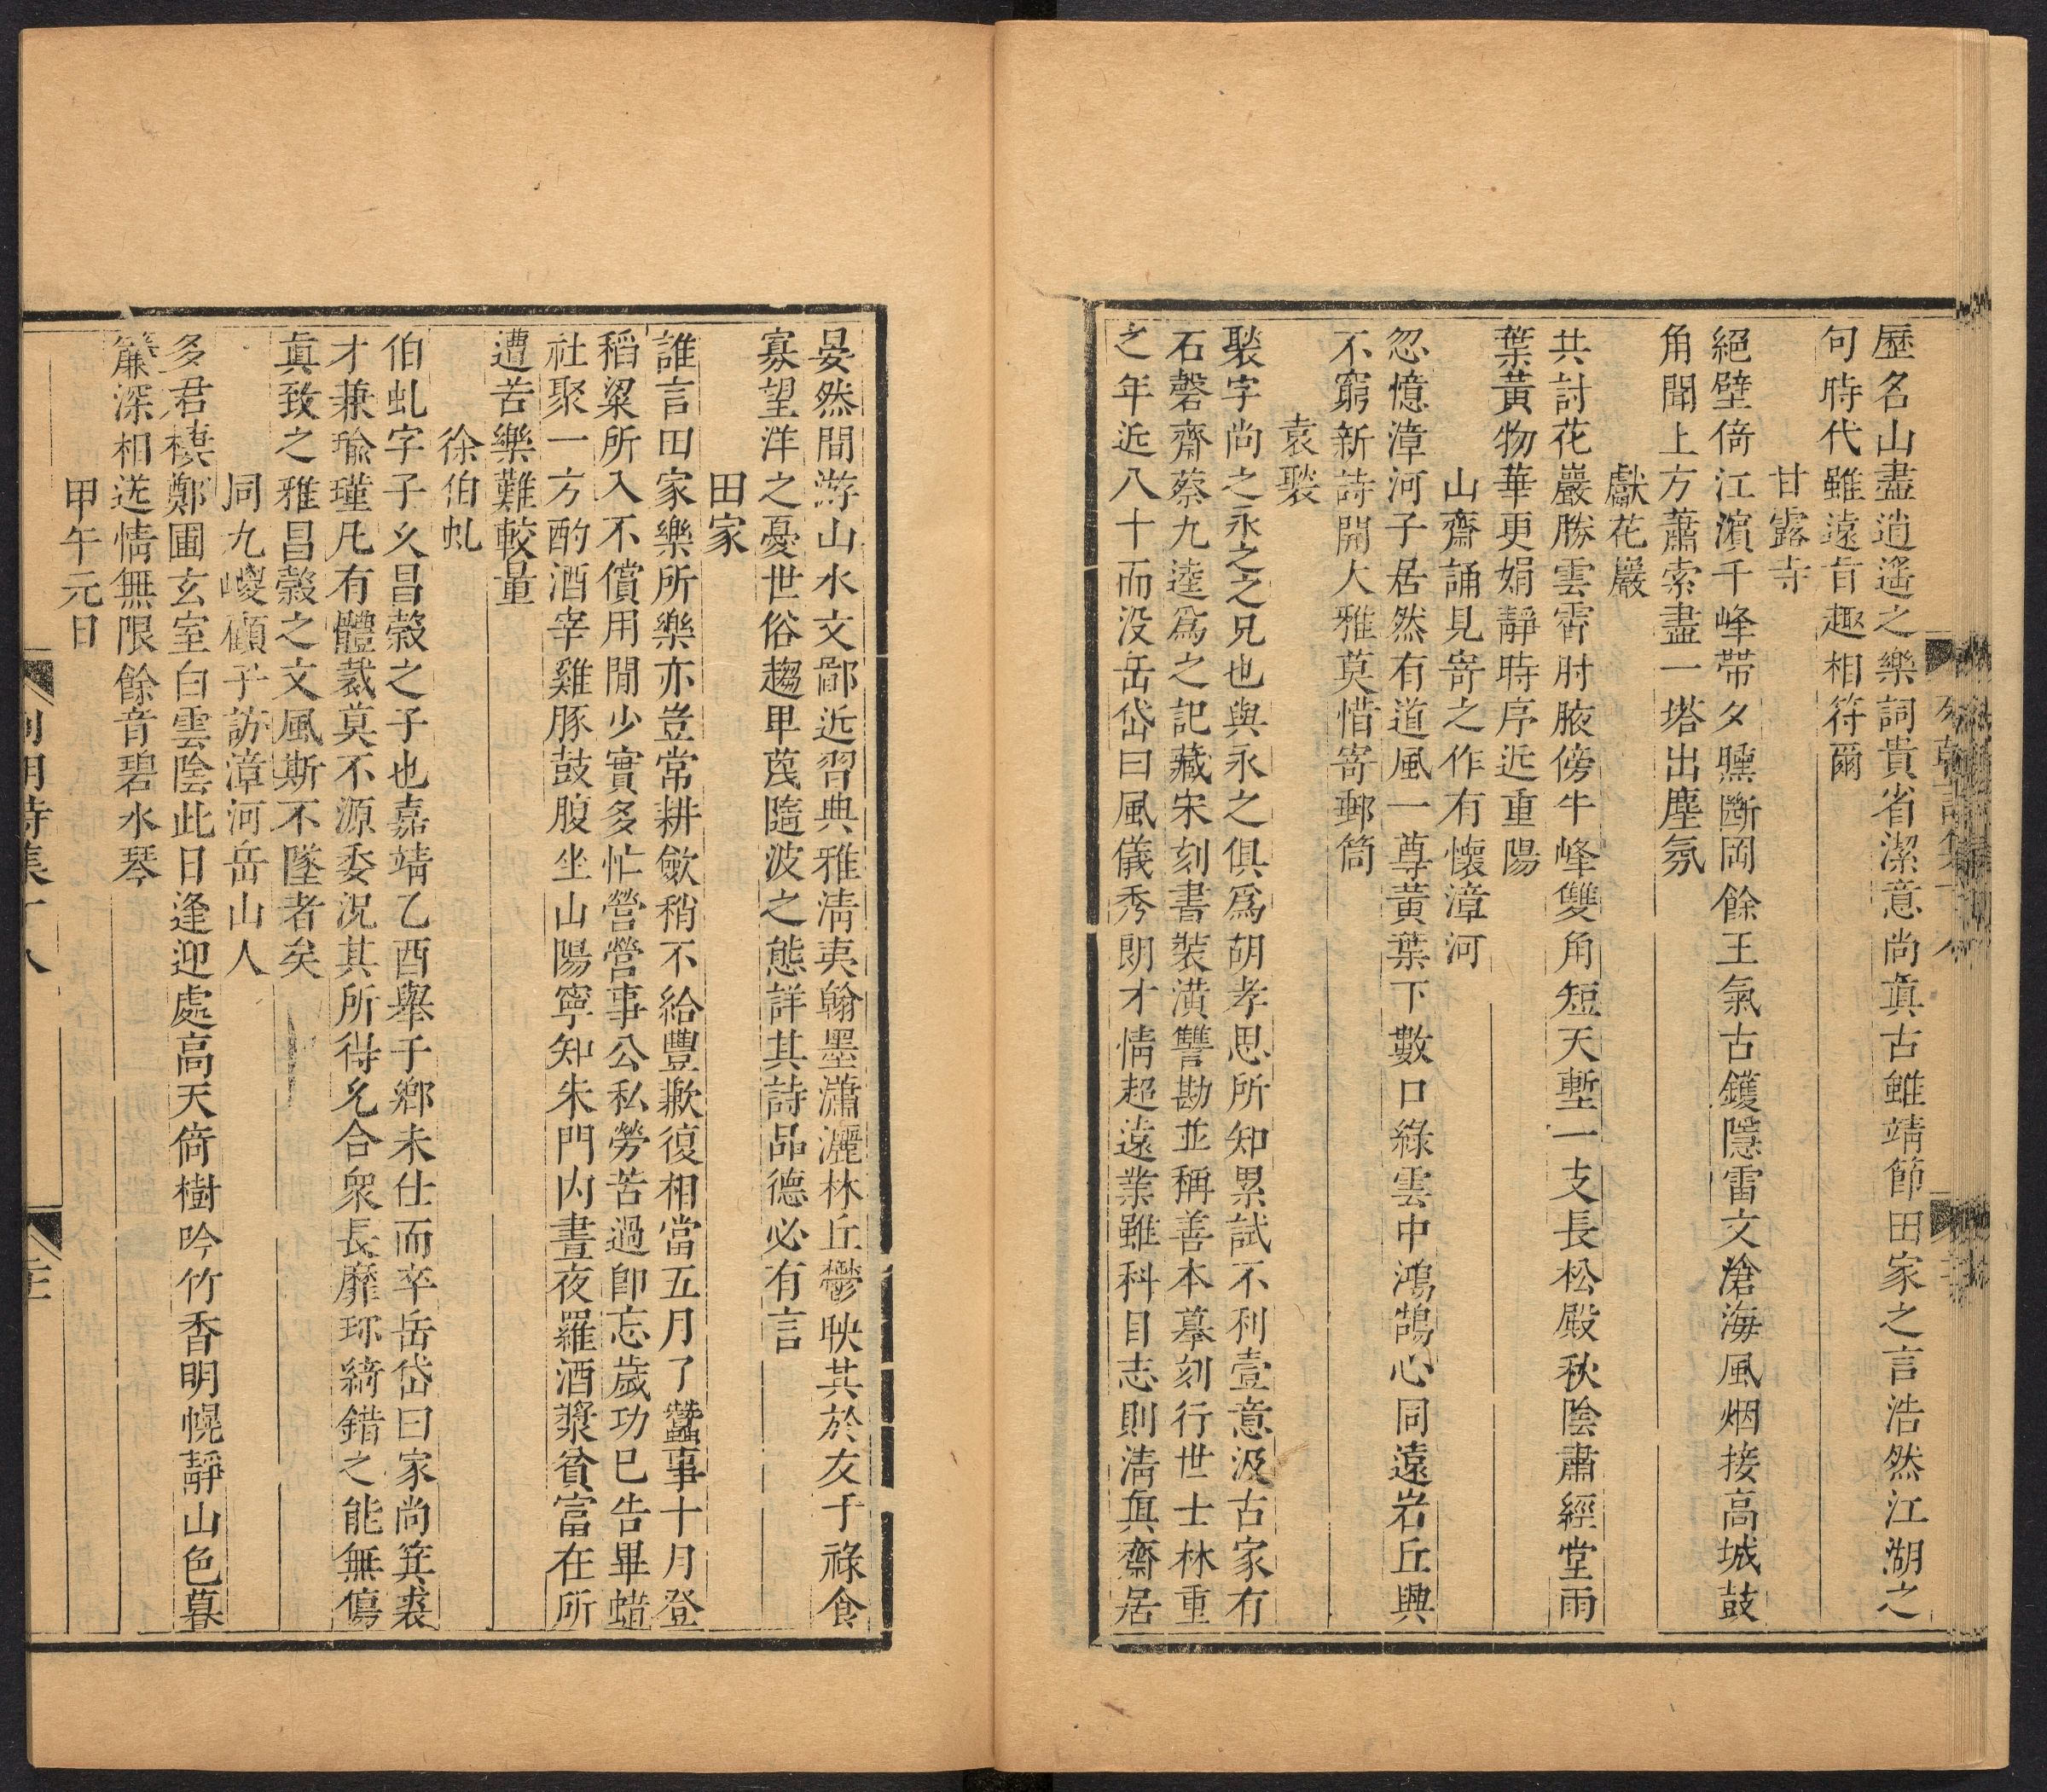 歷名山盡逍遙之樂詞貴省潔意尚眞古雖靖節田家之言浩然江湖之
句時代雖遠旨趣相符爾
甘露寺
絕壁倚江濱千峰帶夕曛斷岡餘王氣古鑊隱雷文滄海風烟接高城鼓
角聞上方蕭索盡一塔出塵氛
獻花巖
共討花巖勝雲霄肘腋傍牛峰雙角短天塹一支長松殿秋陰肅經堂雨
葉黃物華更娟靜時序近重陽
山齋誦見寄之作有懷漳河
忽憶漳河子居然有道風一尊黃葉下數口綠雲中鴻鵠心同遠岩丘興
不窮新詩開大雅莫惜寄郵筒
袁褧
褧字尚之永之之兄也與永之俱爲胡孝思所知累試不利壹意汲古家有
石磬齋蔡九逵爲之記藏宋刻書裝潢讐勘並稱善本摹刻行世士林重
之年近八十而没岳岱曰風儀秀朗才情超遠業雖科目志則淸眞齋居
晏然間游山水文鄙近習典雅淸夷翰墨瀟灑林丘鬱映其於友于祿食
寡望洋之憂世俗趨甲蔑隨波之態詳其詩品德必有言
田家
誰言田家樂所樂亦豈常耕斂稍不給豐歉復相當五月了蠶事十月登
稻粱所入不償用閒少實多忙營營事公私勞苦過卽忘歲功已告畢蜡
社聚一方酌酒宰雞豚鼓腹坐山陽寧知朱門内晝夜羅酒漿貧富在所
遭苦樂難較量
徐伯虬
伯虬字子久昌穀之子也嘉靖乙酉舉于鄉未仕而卒岳岱曰家尚箕裘
才兼瑜瑾凡有體裁莫不源委况其所得允合衆長靡珎綺錯之能無傷
眞致之雅昌榖之文風斯不墜者矣
同九嵕顧子訪漳河岳山人
多君棲鄭圃玄室白雲陰此日逢迎處高天倚樹吟竹香明幌靜山色暮
簾深相送情無限餘音碧水琴
甲午元日